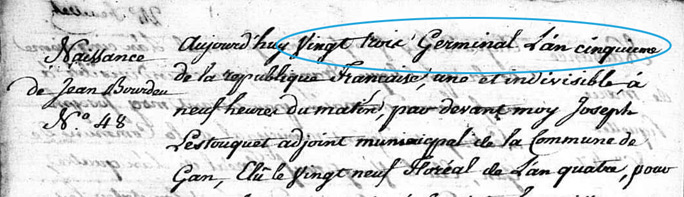 Naissance
de Jean Bourdeu
N.° 48
Aujourd'huy Vingt trois Germinal L'an cinquieme
de la republique Francaise, une et indivisible, à
neuf heures du matin, par devant moy Joseph
Lestouquet adjoint municipal de la Commune de
Gan, Elû le Vingt neuf floréal de L'an quatre, pour